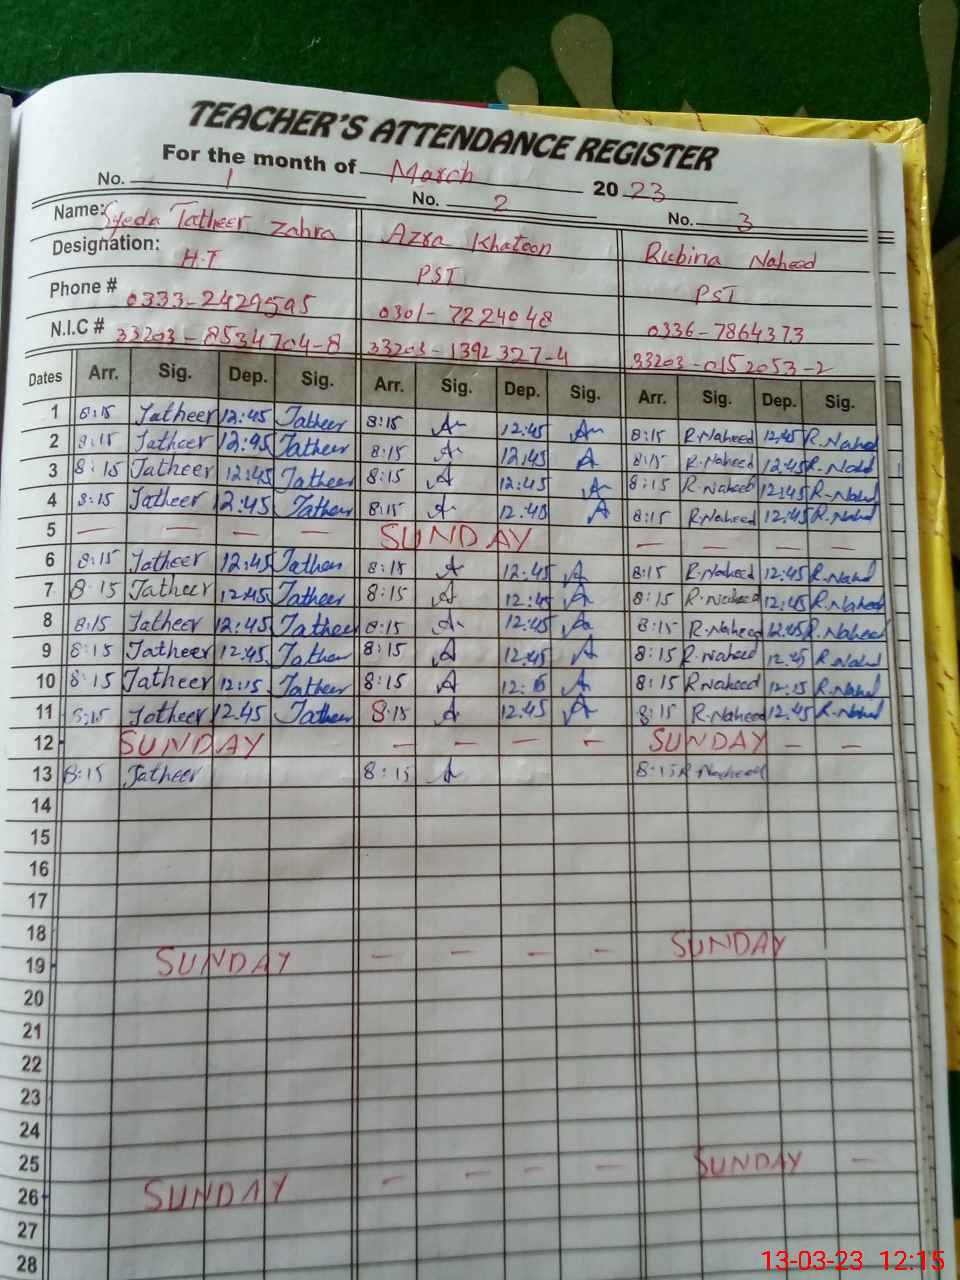 TEACHER'S ATTENDANCE REGISTER
For the month of March 2023
No. 1 No. 2 No. 3
Name: Syeda Tatheer Zahra Azra Khatoon Rubina Naheed
Designation: H.T PST PST
Phone # 0333-2429595 0301-7224048 0336-7864373
N.I.C # 33203-8534704-8 33203-1392327-4 33203-0152053-2
Dates Arr. Sig. Dep. Sig. Arr. Sig. Dep. Sig. Arr. Sig. Dep. Sig.
1 8:15 Tatheer 12:45 Tatheer 8:15 A 12:45 A 8:15 R.Naheed 12:45 R.Nahed
2 8:15 Tatheer 12:45 Tatheer 8:15 A 12:45 A 8:15 R.Naheed 12:45 R.Nahed
3 8:15 Tatheer 12:45 Tatheer 8:15 A 12:45 A 8:15 R.Naheed 12:45 R.Nahed
4 8:15 Tatheer 12:45 Tatheer 8:15 A 12.45 A 8:15 R.Naheed 12:45 R.Nahed
5 — — — — SUNDAY — — — —
6 8:15 Tatheer 12:45 Tatheer 8:15 A 12:45 A 8:15 R.Naheed 12:45 R.Nahed
7 8:15 Tatheer 12:45 Tatheer 8:15 A 12:45 A 8:15 R.Naheed 12:45 R.Naheed
8 8:15 Tatheer 12:45 Tatheer 8:15 A 12:45 A 8:15 R.Naheed 12:45 R.Naheed
9 8:15 Tatheer 12:45 Tatheer 8:15 A 12:45 A 8:15 R.Naheed 12:45 R.Nahed
10 8:15 Tatheer 12:15 Tatheer 8:15 A A 8:15 R.Naheed 12:15 R.Nahed
11 8:15 Tatheer 12.45 Tatheer 8:15 A 12:45 A 8:15 R.Naheed 12:45 R.Nahed
12 SUNDAY — — — — SUNDAY — —
13 8:15 Tatheer 8:15 A 8:15 R.Naheed
14
15
16
17
18
19 SUNDAY — — — — SUNDAY
20
21
22
23
24
25
26 SUNDAY — — — — SUNDAY —
27
28
13-03-23 12:15